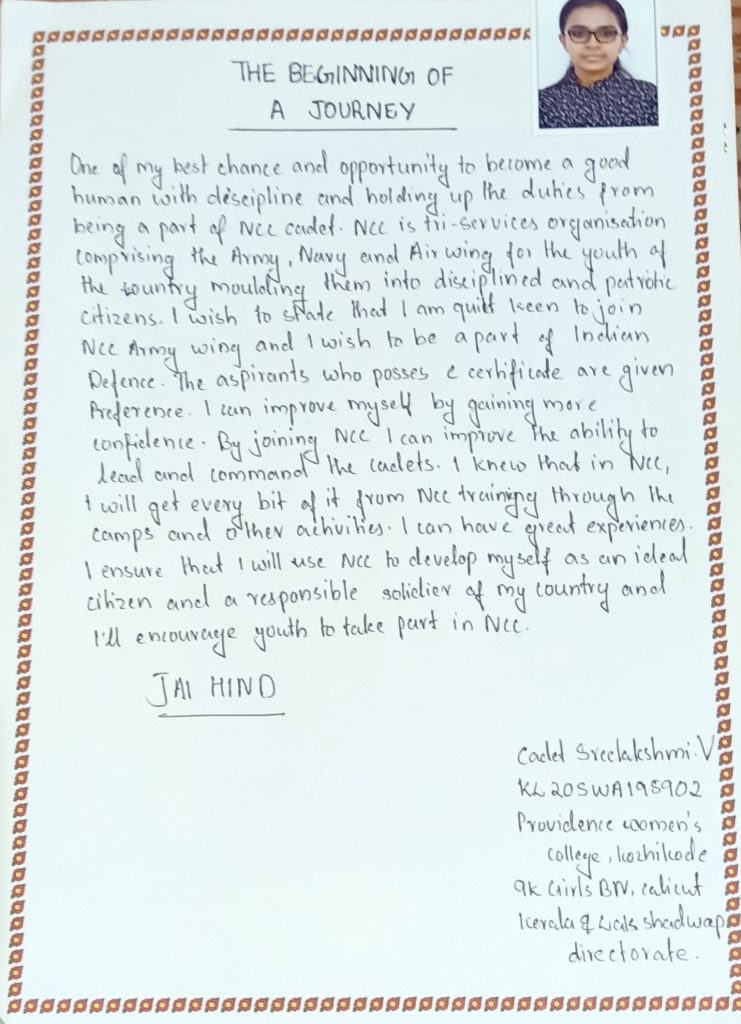 THE BEGINNING OF
A JOURNEY
One of my best chance and opportunity to become a good
human with discipline and holding up the duties from
being a part of NCC cadet. NCC is tri-services organisation
comprising the Army, Navy and Air wing for the youth of
the country moulding them into disciplined and patrotic
citizens. I wish to state that I am quitt keen to join
NCC Army wing and I wish to be a part of Indian
Defence. The aspirants who posses c certificate are given
Preference. I can improve myself by gaining more
confidence. By joining NCC I can improve the ability to
lead and command the cadets. I knew that in NCC,
I will get every bit of it from NCC training through the
camps and other activities. I can have great experiences.
I ensure that I will use NCC to develop myself as an ideal
citizen and a responsible solidier of my country and
I'll encourage youth to take part in NCC.
JAI HIND
Cadet Sreelakshmi. V
KL20SWA195902
Providence women's
college, kozhikode
9K Girls BN, calicut
Kerala & Lakshadwap
directorate.